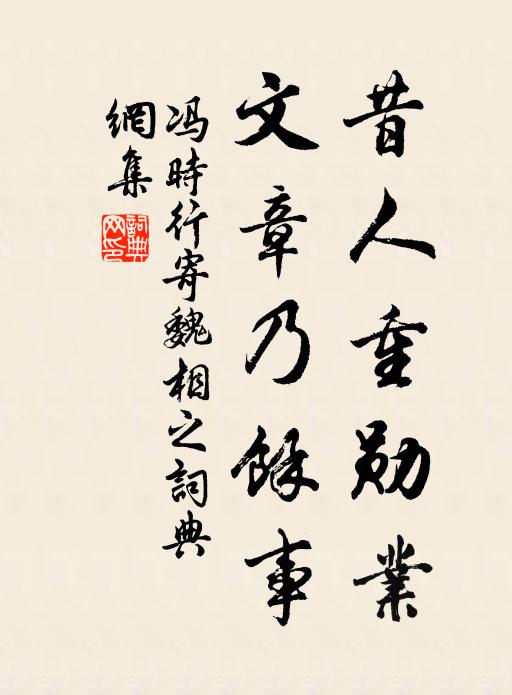 昔人重勋業
文章乃餘事
冯時行寄魏相之詞典
網集
詞典
网印